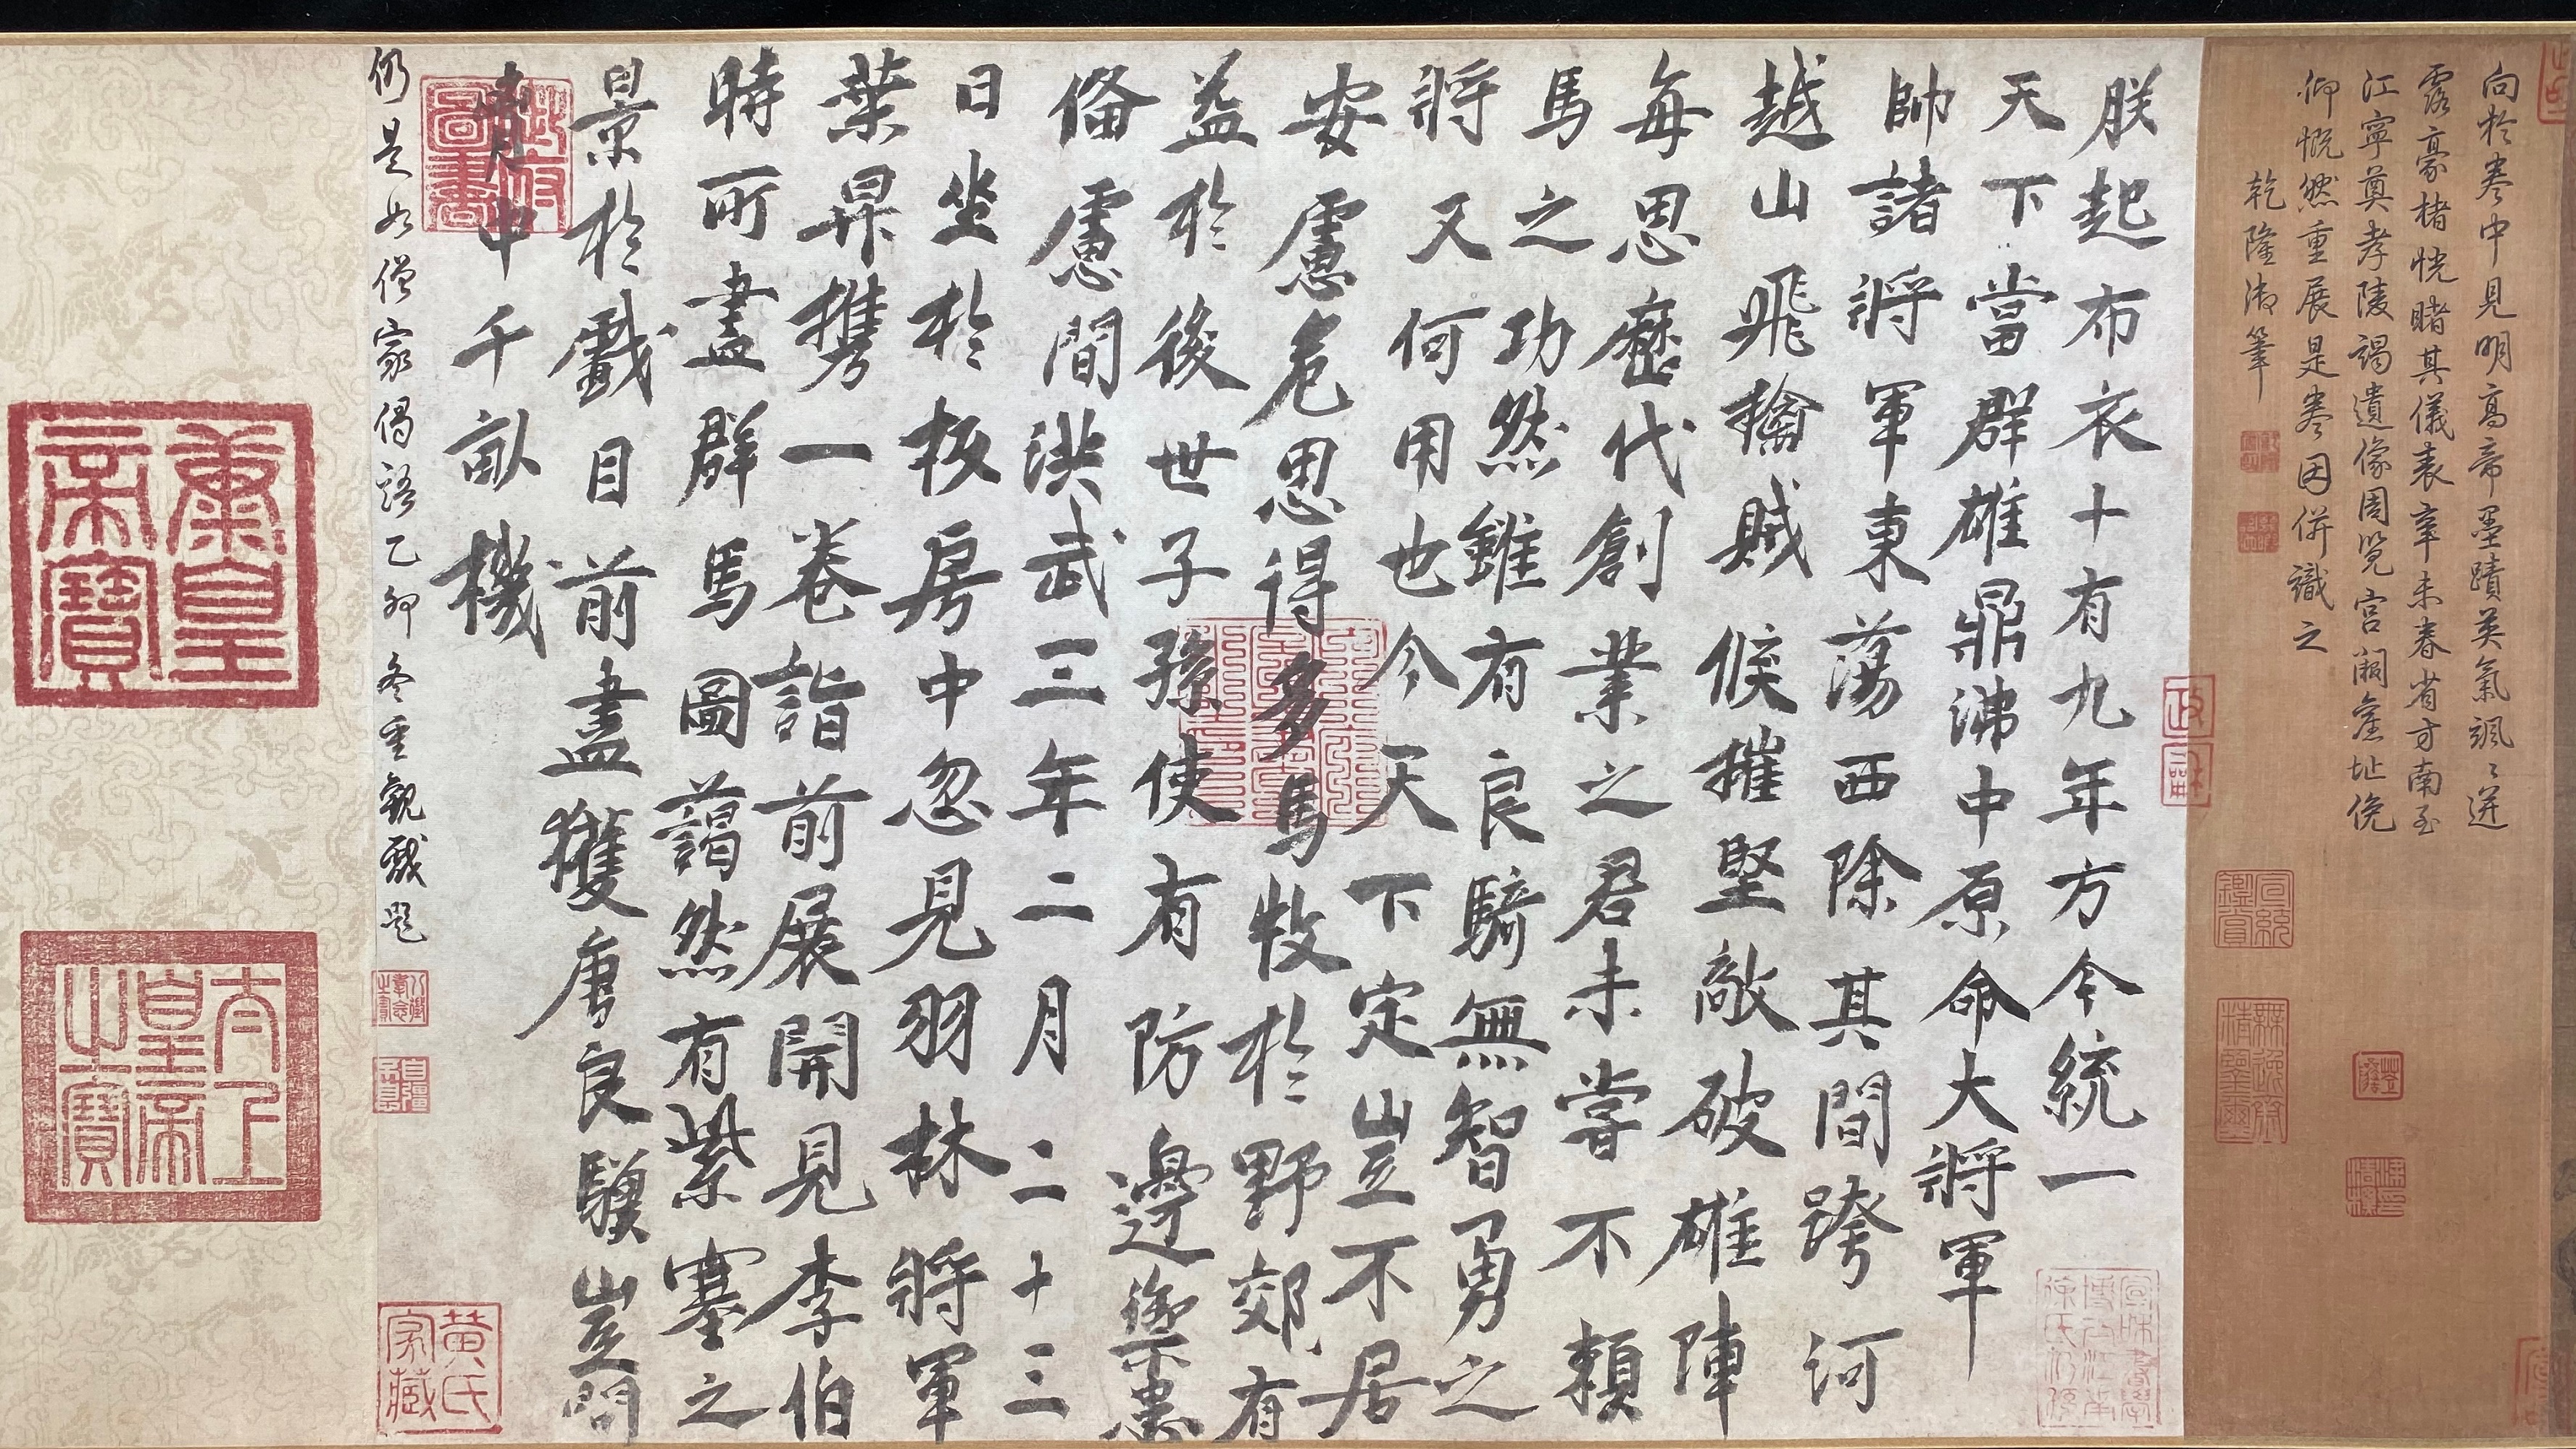 向於卷中見明高帝墨蹟英氣颯〻迸
露豪楮恍睹其儀表辛未春省方南至
江寧奠孝陵謁遺像周覽宮闕舊址俛
仰慨然重展是卷因併識之
乾隆御筆
朕起布衣十有九年方今統一
天下當群雄鼎沸中原命大將軍
帥諸將軍東蕩西除其間跨河
越山飛擒賊候摧堅敵破雄陣
每思歷代創業之君未嘗不賴
馬之功然雖有良騎無智勇之
將又何用也今天下定豈不居
安慮危思得多馬牧於野郊有
益於後世子孫使有防邊禦患
俻慮間洪武三年二月二十三
日坐於板房中忽見羽林將軍
葉昇携一卷詣前展開見李伯
時所畫群馬圖藹然有紫塞之
景於戲目前盡獲唐良驥豈問
胷中千畝機
仍是如僧家偈語乙卯冬重觀戲題
秉皇帝寶
太上皇帝之寶
黃氏家藏
八徵耄念之寶
自彊不息
宣統鑒賞
無逸齋精鑒璽